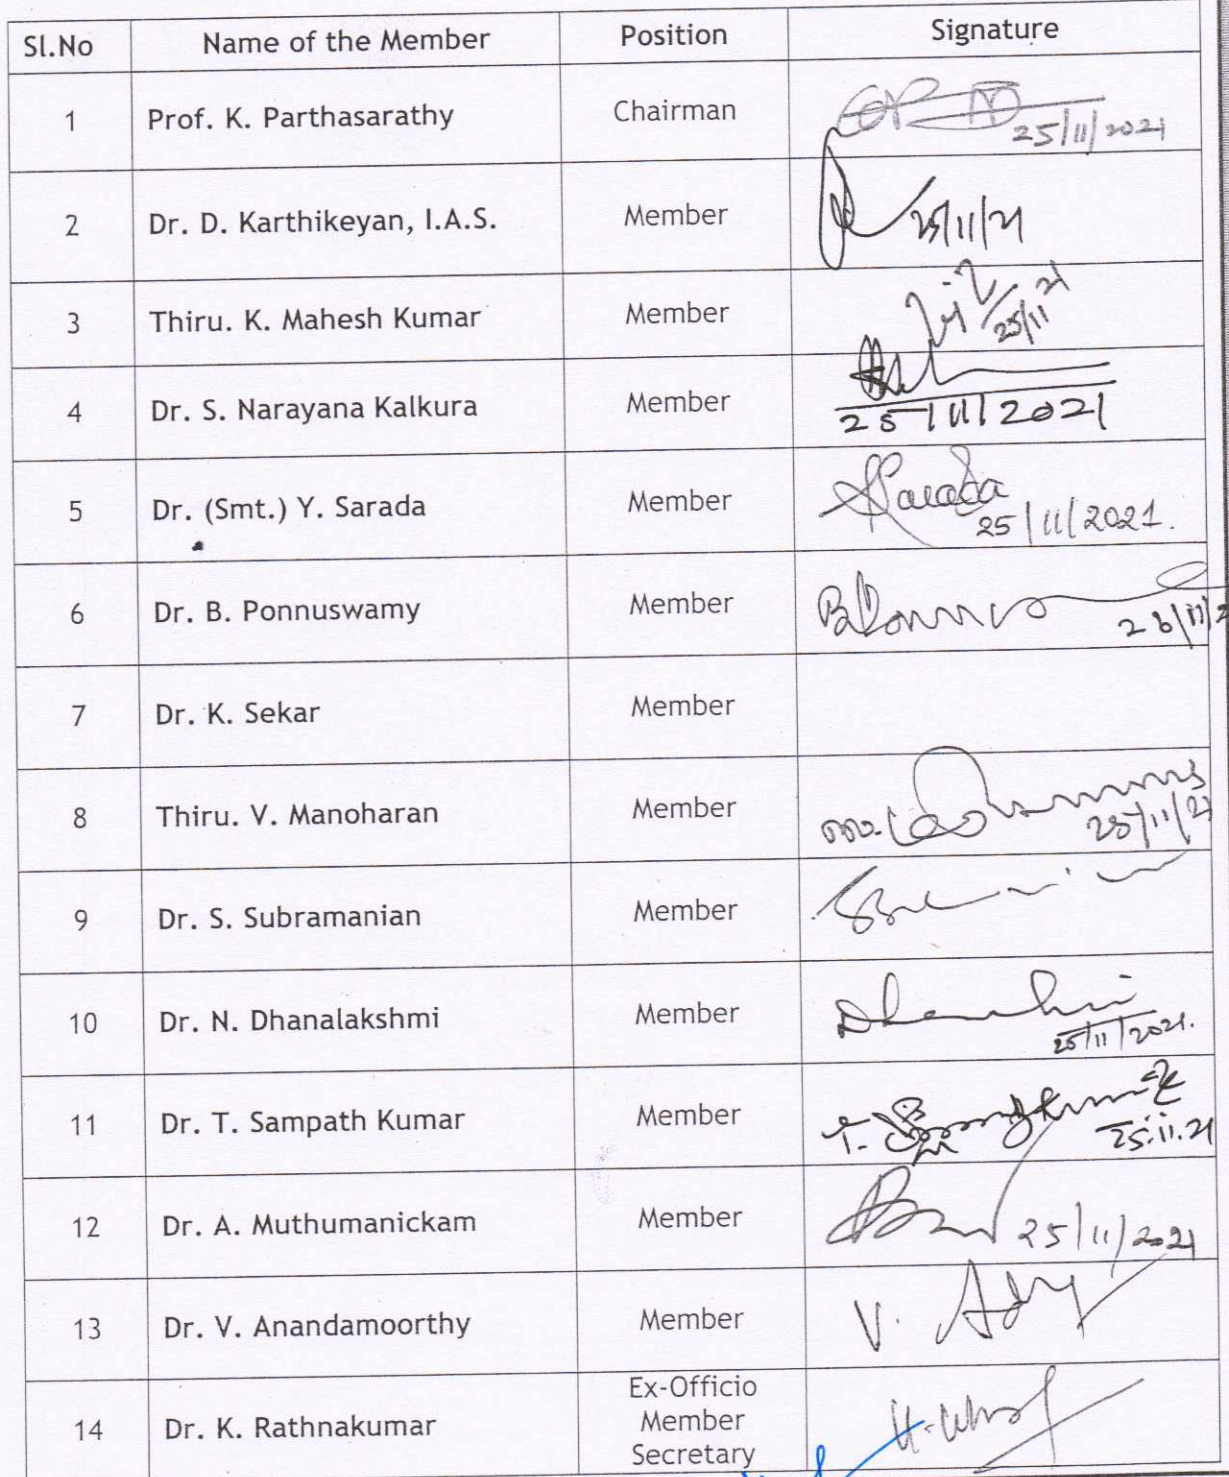 Sl.No Name of the Member Position Signature
1 Prof. K. Parthasarathy Chairman
25/11/2021
2 Dr. D. Karthikeyan, I.A.S. Member 25/11/21
3 Thiru. K. Mahesh Kumar Member 25/11/21
4 Dr. S. Narayana Kalkura Member
25/11/2021
5 Dr. (Smt.) Y. Sarada Member Sarada
25/11/2021.
6 Dr. B. Ponnuswamy Member
7 Dr. K. Sekar Member
8 Thiru. V. Manoharan Member
25/11/21
9 Dr. S. Subramanian Member
10 Dr. N. Dhanalakshmi Member
25/11/2021.
11 Dr. T. Sampath Kumar Member
25.11.21
12 Dr. A. Muthumanickam Member 25/11/2021
13 Dr. V. Anandamoorthy Member V.
14 Dr. K. Rathnakumar Ex-Officio
Member
Secretary